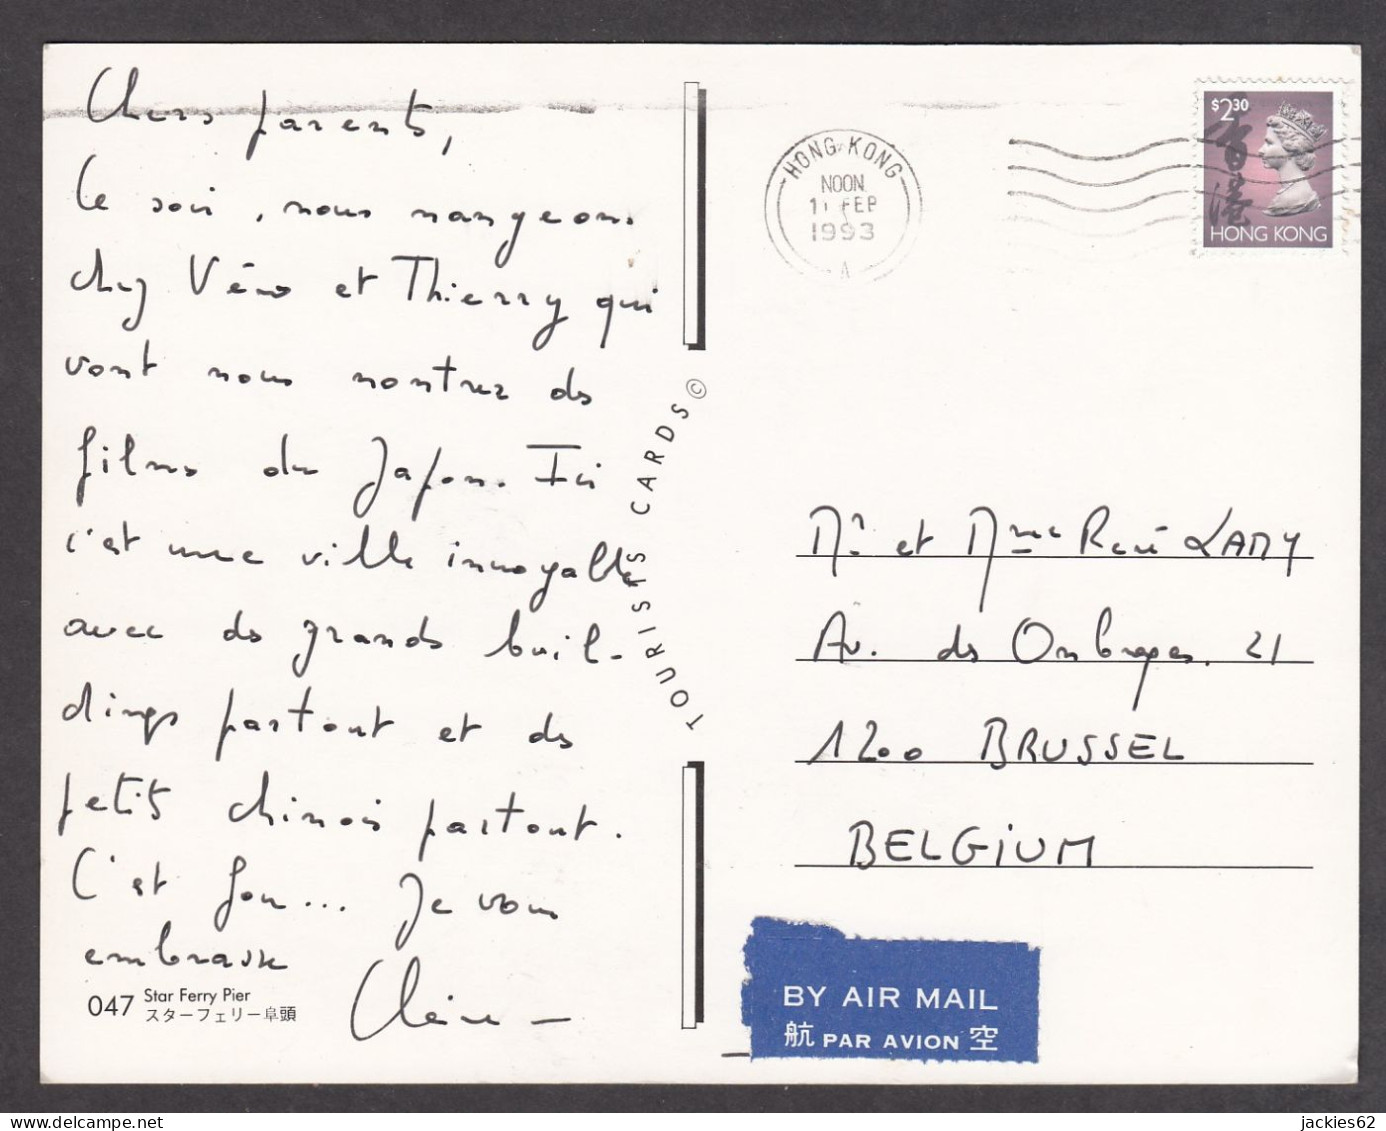 Chers parents,
Ce soir, nous mangeons
chez Véro et Thierry qui
vont nous montrer des
films du Japon. Ici
c'est une ville incroyable
avec des grands buil-
dings partout et des
petits chinois partout.
C'est fou... Je vous
embrasse
047 Star Ferry Pier
スターフェリー阜頭
TOURISTS CARDS ©
HONG KONG
NOON
11 FEB
1993
A
$2.30
香港
HONG KONG
Mr et Mme René LAMY
Av. des Ombrages. 21
1200 BRUSSEL
BELGIUM
BY AIR MAIL
航 PAR AVION 空
jackies62